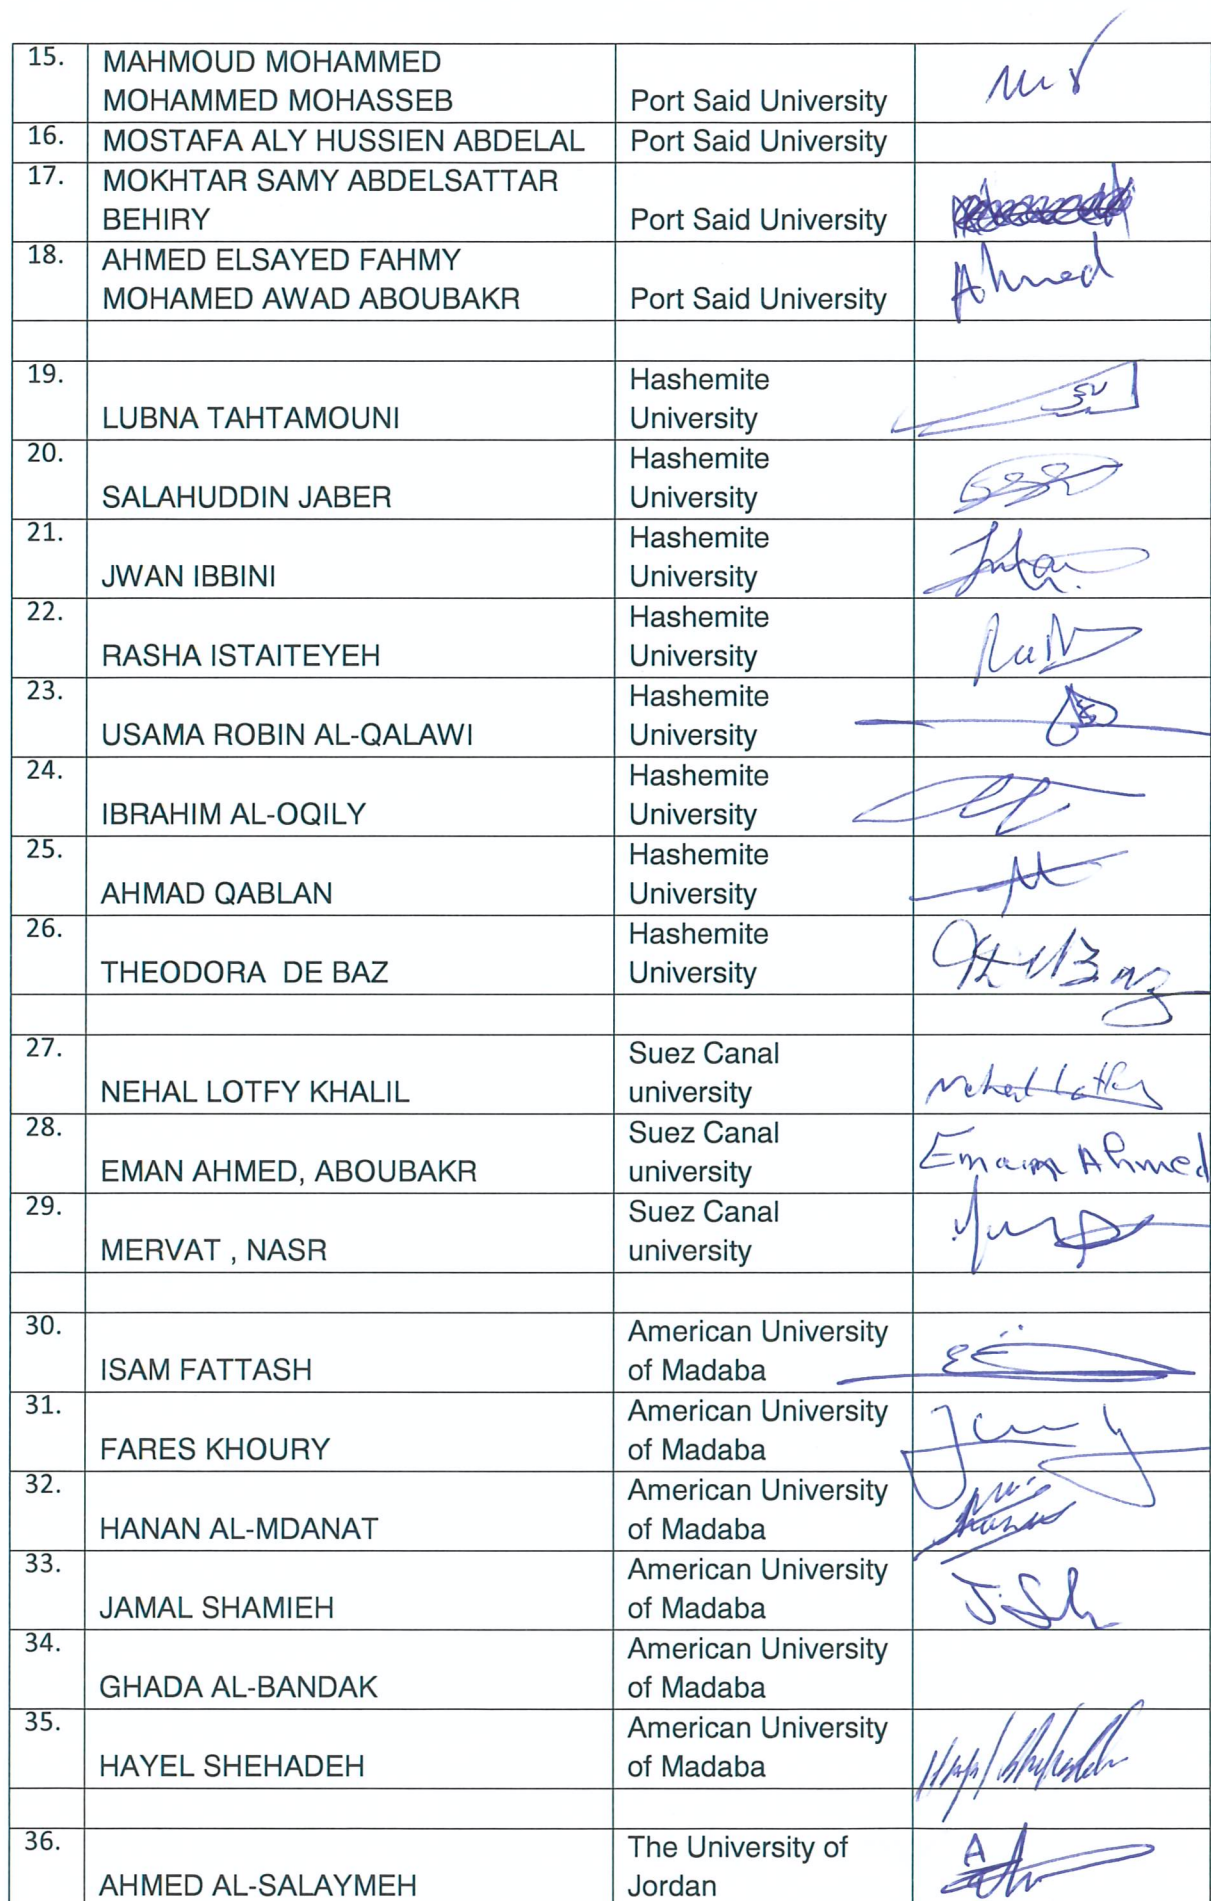 15.
MAHMOUD MOHAMMED
MOHAMMED MOHASSEB
Port Said University
16.
MOSTAFA ALY HUSSIEN ABDELAL
Port Said University
17.
MOKHTAR SAMY ABDELSATTAR
BEHIRY
Port Said University
18.
AHMED ELSAYED FAHMY
MOHAMED AWAD ABOUBAKR
Port Said University
Ahmed
19.
LUBNA TAHTAMOUNI
Hashemite
University
20.
SALAHUDDIN JABER
Hashemite
University
21.
JWAN IBBINI
Hashemite
University
22.
RASHA ISTAITEYEH
Hashemite
University
23.
USAMA ROBIN AL-QALAWI
Hashemite
University
24.
IBRAHIM AL-OQILY
Hashemite
University
25.
AHMAD QABLAN
Hashemite
University
26.
THEODORA DE BAZ
Hashemite
University
27.
NEHAL LOTFY KHALIL
Suez Canal
university
Nehal Lotfy
28.
EMAN AHMED, ABOUBAKR
Suez Canal
university
Eman Ahmed
29.
MERVAT , NASR
Suez Canal
university
30.
ISAM FATTASH
American University
of Madaba
31.
FARES KHOURY
American University
of Madaba
32.
HANAN AL-MDANAT
American University
of Madaba
33.
JAMAL SHAMIEH
American University
of Madaba
34.
GHADA AL-BANDAK
American University
of Madaba
35.
HAYEL SHEHADEH
American University
of Madaba
36.
AHMED AL-SALAYMEH
The University of
Jordan